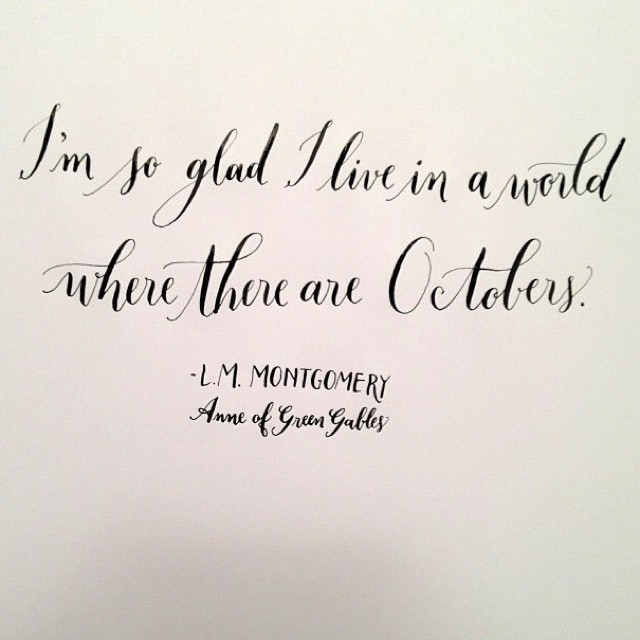 I'm so glad I live in a world
where there are Octobers.
-L.M. MONTGOMERY
Anne of Green Gables